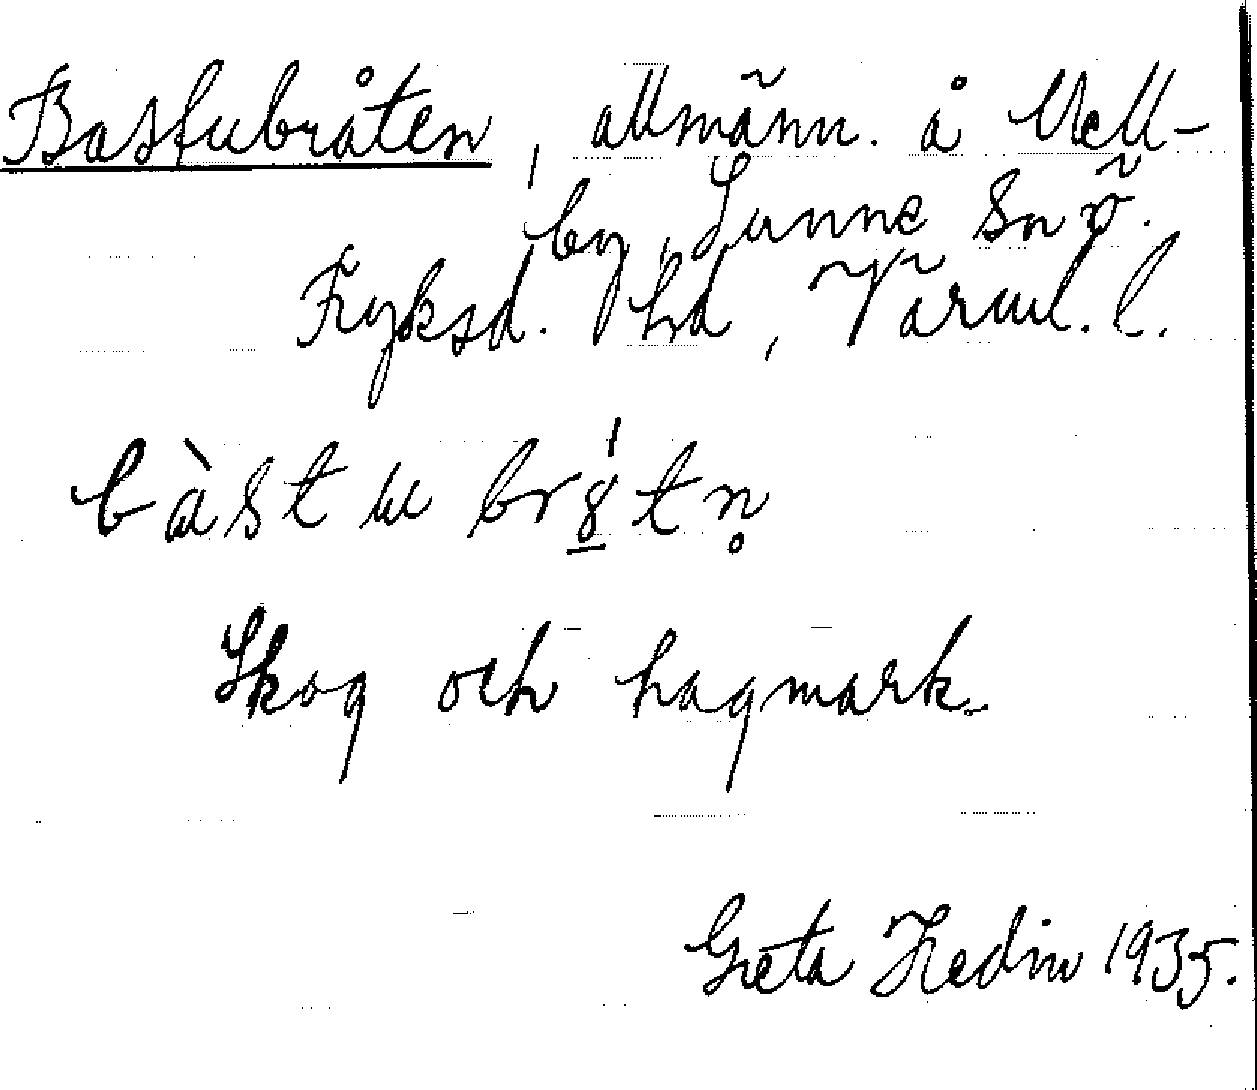 Bastubråten, allmänn. å Mell-
by, Sunne sn ö.
Fryksd. hd, Värml. l.
bàstu br8́tn̥
Skog och hagmark.
Greta Hedin 1935.